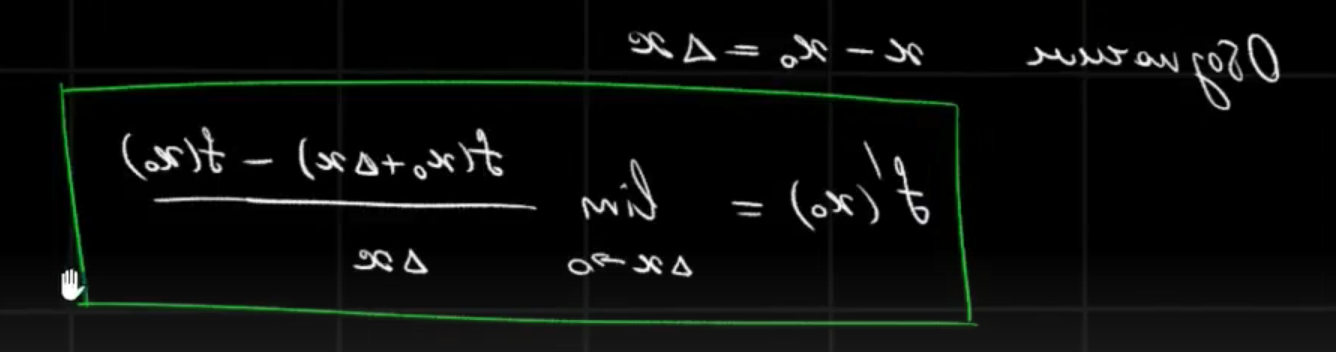 Обозначим x - x₀ = Δx
f'(x₀) = lim_{Δx→0} \frac{f(x₀+Δx) - f(x₀)}{Δx}